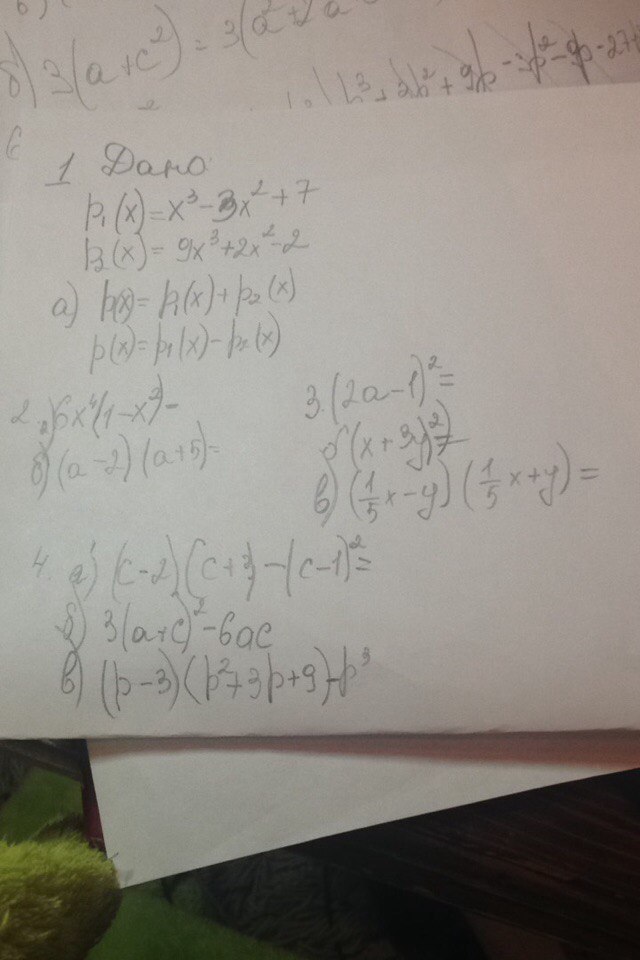 б) 3(a+c²) = 3(a²+2a
1 Дано:
p₁(x)=x³-3x²+7
p₂(x)=9x³+2x²-2
а) p(x)=p₁(x)+p₂(x)
p(x)=p₁(x)-p₂(x)
2. а) 6x⁴(1-x³)-
б) (a-2)(a+5)=
3. (2a-1)²=
б (x+3y)²=
в) (1/5x-y)(1/5x+y)=
4. а) (c-2)(c+3)-(c-1)²=
б) 3(a+c)²-6ac
в) (p-3)(p²+3p+9)-p³